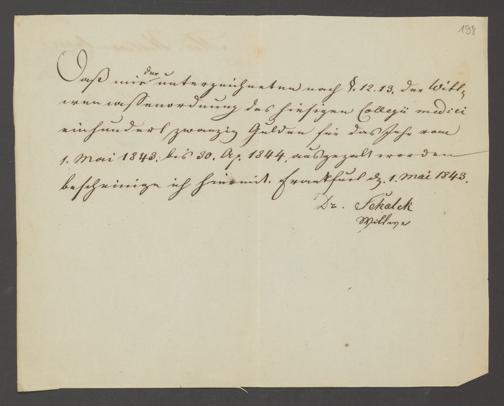 198
Daß mir der unterzeichneten nach §. 12. 13. der Witt-
wencassenordnung des hiesigen Collegii medici
einhundert zwanzig Gulden für das Jahr vom
1. Mai 1843. bis 30. Ap. 1844. ausgezalt worden
bescheinige ich hiermit. Frankfurt d. 1. Mai 1843.
Dr. Schalck
Wittwe